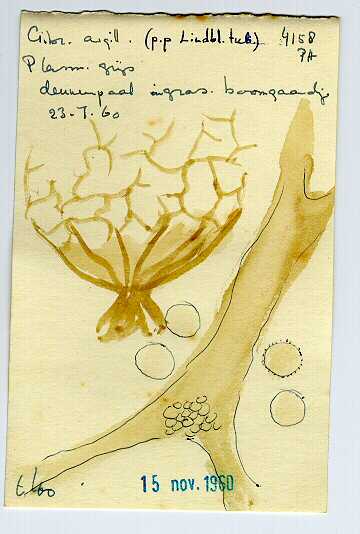 Cribr. argill. (p.p Lindbl. tub.) 4158
7A
Plasm. grijs
dennenpaal in gras. boomgaardje
23-7-60
t. 600
15 nov. 1960